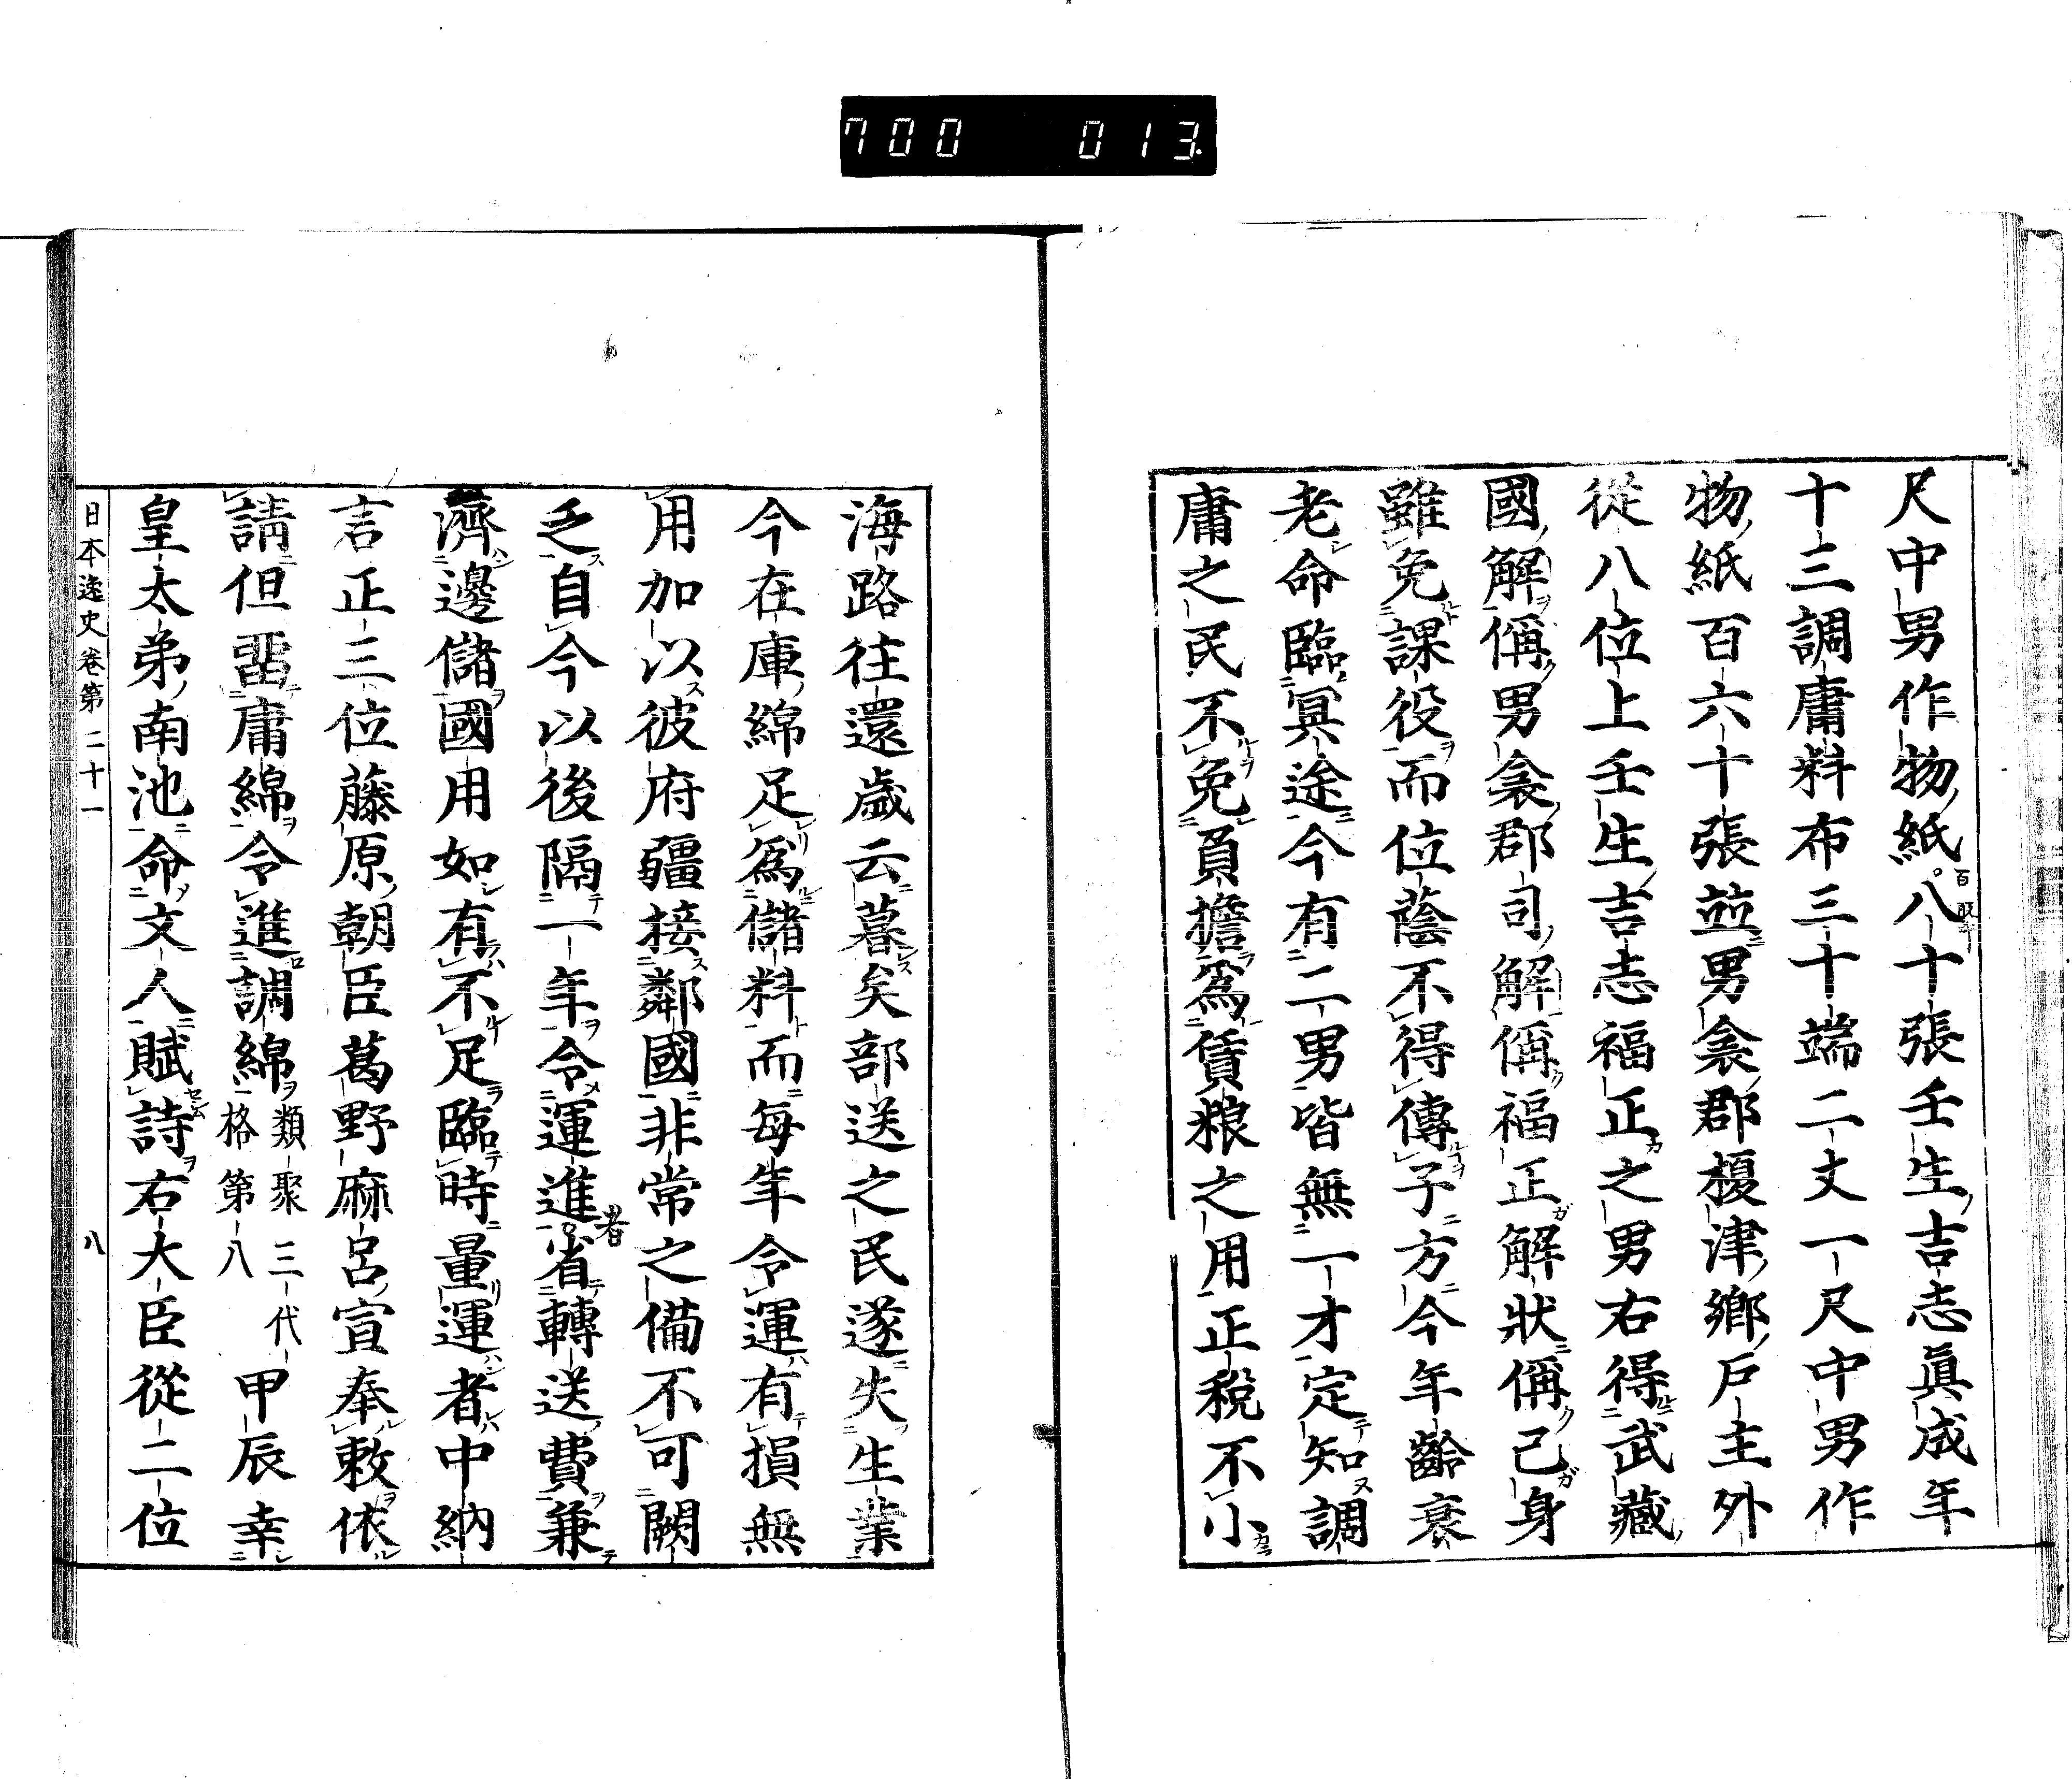 700 013
尺中男作物紙八十張壬生吉志眞成年
十三調庸料布三十端二丈一尺中男作
物紙百六十張並男衾郡榎津鄕戶主外
從八位上壬生吉志福正之男右得武藏
國解偁男衾郡司解偁福正解狀偁己身
雖免課役而位蔭不得傳子方今年齡衰
老命臨冥途今有二男皆無一才定知調
庸之民不免負擔爲賃粮之用正稅不小
海路往還歲云暮矣部送之民遂失生業
今在庫綿足爲儲料而每年令運有損無
用加以彼府疆接鄰國非常之備不可闕
乏自今以後隔一年令運進畧省轉送費兼
濟邊儲國用如有不足臨時量運者中納
言正三位藤原朝臣葛野麻呂宣奉敕依
請但畱庸綿令進調綿類聚三代格第八甲辰幸
皇太弟南池命文人賦詩右大臣從二位
日本逸史卷第二十一 八